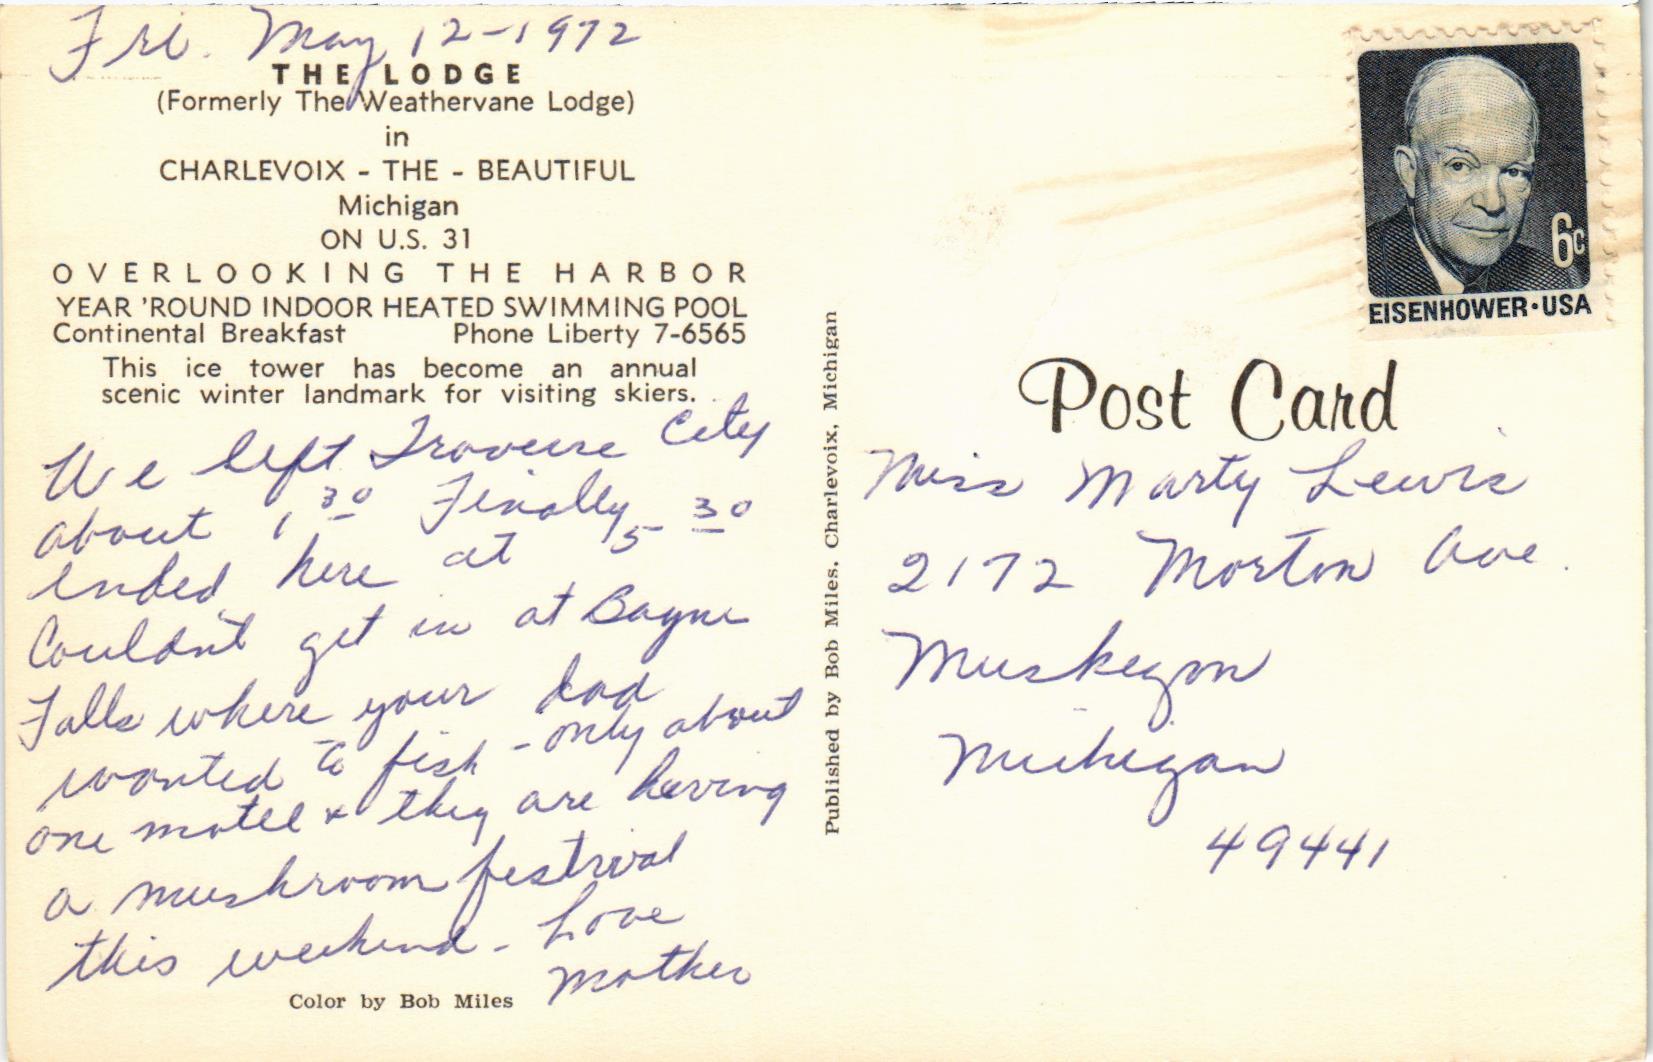 Fri. May 12-1972
THE LODGE
(Formerly The Weathervane Lodge)
in
CHARLEVOIX - THE - BEAUTIFUL
Michigan
ON U.S. 31
OVERLOOKING THE HARBOR
YEAR 'ROUND INDOOR HEATED SWIMMING POOL
Continental Breakfast Phone Liberty 7-6565
This ice tower has become an annual
scenic winter landmark for visiting skiers.
We left Traverse City
about 1 30 Finally
ended here at 5 30
Couldn't get in at Boyne
Falls where your dad
wanted to fish - only about
one motel & they are having
a mushroom festival
this weekend - Love
Mother
Color by Bob Miles
Published by Bob Miles, Charlevoix, Michigan
6c
EISENHOWER · USA
Post Card
Miss Marty Lewis
2172 Morton Ave.
Muskegon
Michigan
49441